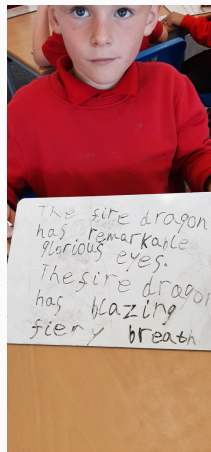 The fire dragon
has remarkable
glorious eyes.
The fire dragon
has blazing
fiery breath